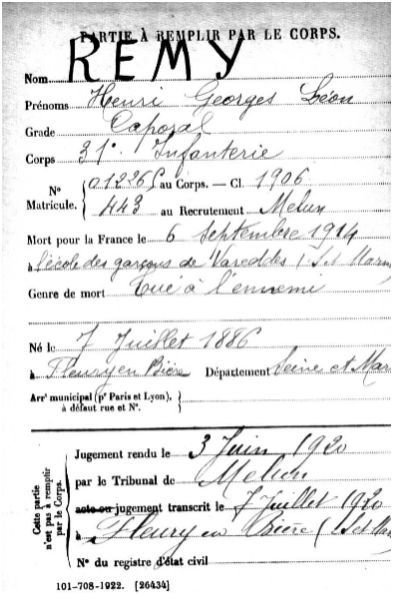 PARTIE À REMPLIR PAR LE CORPS.
Nom REMY
Prénoms Henri Georges Léon
Grade Caporal
Corps 31e Infanterie
N° Matricule. 01236 au Corps. — Cl. 1906
443 au Recrutement Melun
Mort pour la France le 6 Septembre 1914
à l'école des garçons de Vareddes (S. et Marn
Genre de mort Tué à l'ennemi
Né le 7 Juillet 1886
à Fleury en Bière Département Seine et Mar
Arrt municipal (pr Paris et Lyon),
à défaut rue et N°.
Cette partie n'est pas à remplir par le Corps.
Jugement rendu le 3 Juin 1920
par le Tribunal de Melun
acte ou jugement transcrit le 7 Juillet 1920
à Fleury en Bière (S. et Mar
N° du registre d'état civil
101-708-1922. [26434]